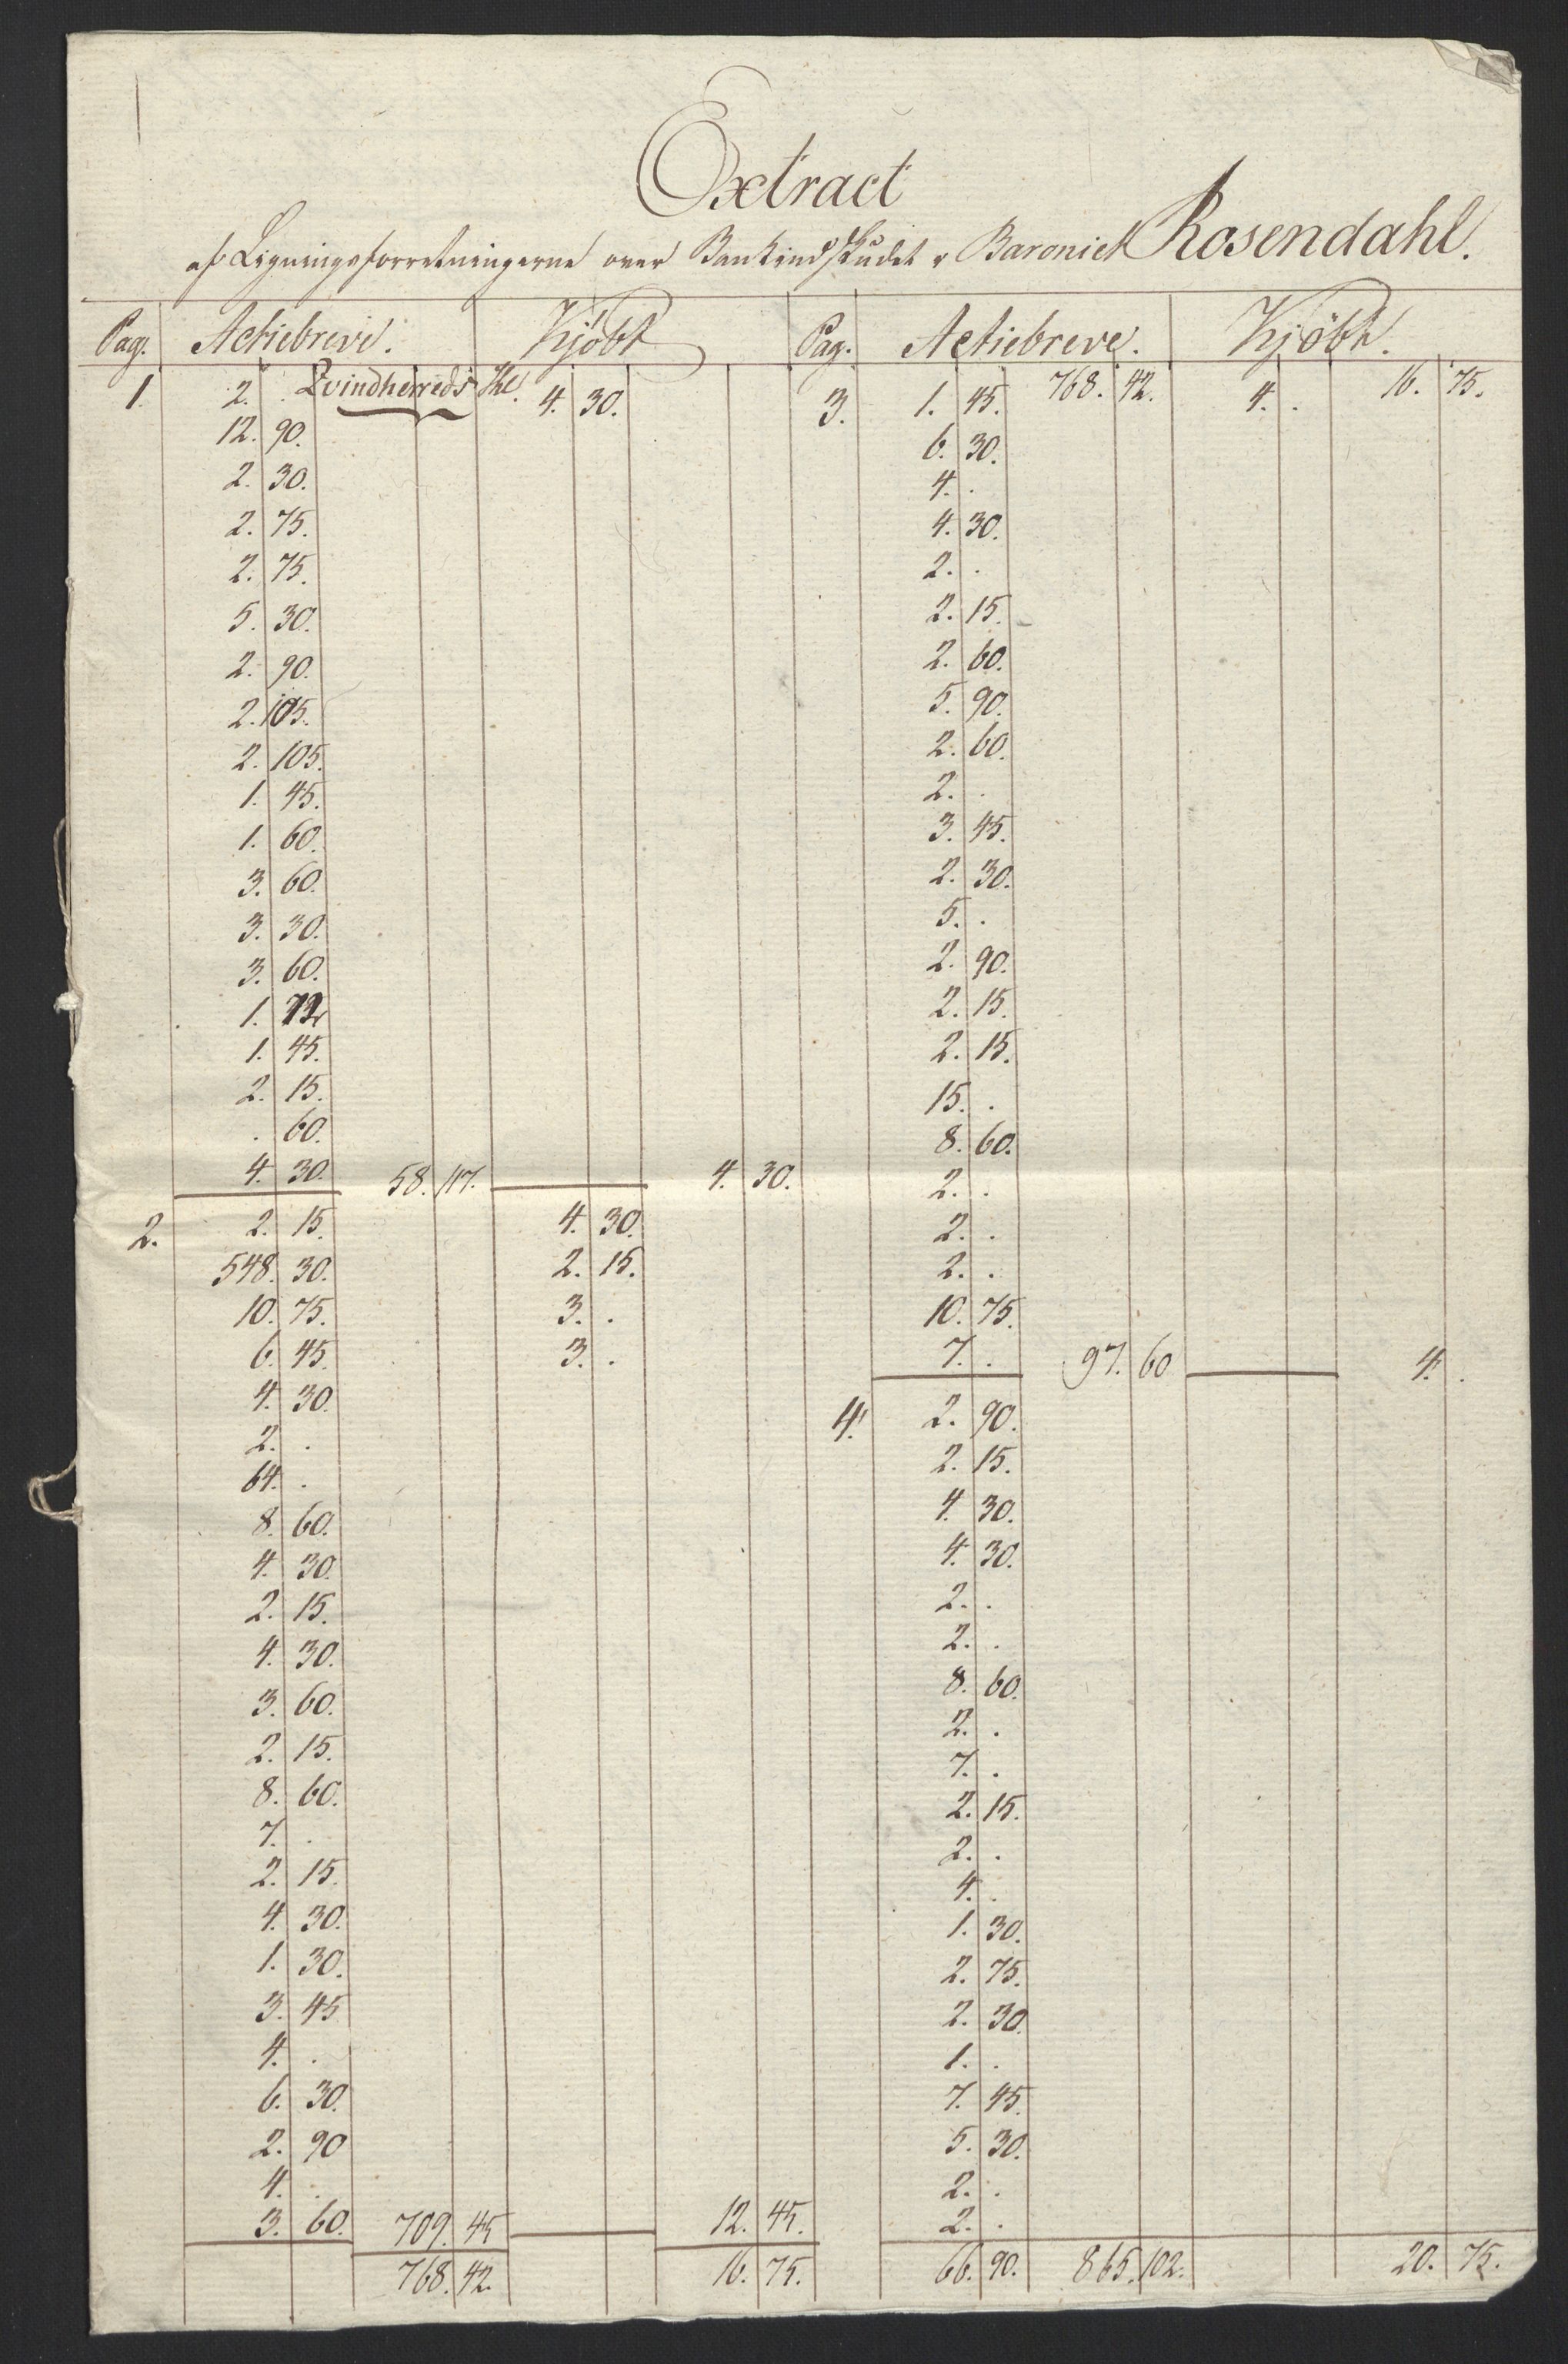 Extract
af Ligningsforretningerne over Bankindskudet i Baroniet Rosendahl.
Pag. Actiebreve. Kjöbt Pag. Actiebreve. Kjöbt.
1. 2. . Qvindherreds 4. 30. 3. 1. 45. 768. 42. 4. . 16. 75.
12. 90. 6. 30.
2. 30. 4. .
2. 75. 4. 30.
2. 75. 2. .
5. 30. 2. 15.
2. 90. 2. 60.
2. 105. 5. 90.
2. 105. 2. 60.
1. 45. 2. .
1. 60. 3. 45.
3. 60. 2. 30.
3. 30. 5. .
3. 60. 2. 90.
1. 2. 15.
1. 45. 2. 15.
2. 15. 15. .
. 60. 8. 60.
4. 30. 58. 117. 4. 30. 2. .
2. 2. 15. 4. 30. 2. .
548. 30. 2. 15. 2. .
10. 75. 3. . 10. 75.
6. 45. 3. . 7. . 97. 60 4. .
4. 30. 4. 2. 90.
2. . 2. 15.
64. . 4. 30.
8. 60. 4. 30.
4. 30. 2. .
2. 15. 2. .
4. 30. 8. 60.
3. 60. 2. .
2. 15. 7. .
8. 60. 2. 15.
7. . 2. .
2. 15. 4. .
4. 30. 1. 30.
1. 30. 2. 75.
3. 45 2. 30.
4. . 1. .
6. 30. 7. 45.
2. 90 5. 30.
4. . 2. .
3. 60. 709. 45 12. 45. 2. .
768. 42. 16. 75. 66. 90. 865. 102. 20. 75.